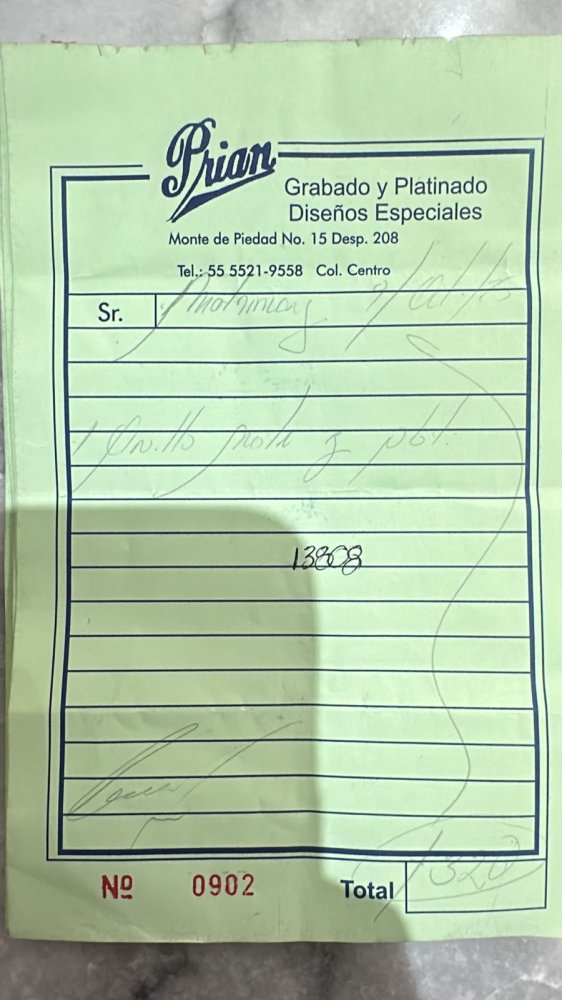 Prian
Grabado y Platinado
Diseños Especiales
Monte de Piedad No. 15 Desp. 208
Tel.: 55 5521-9558 Col. Centro
Sr.
13808
Nº 0902 Total 1320